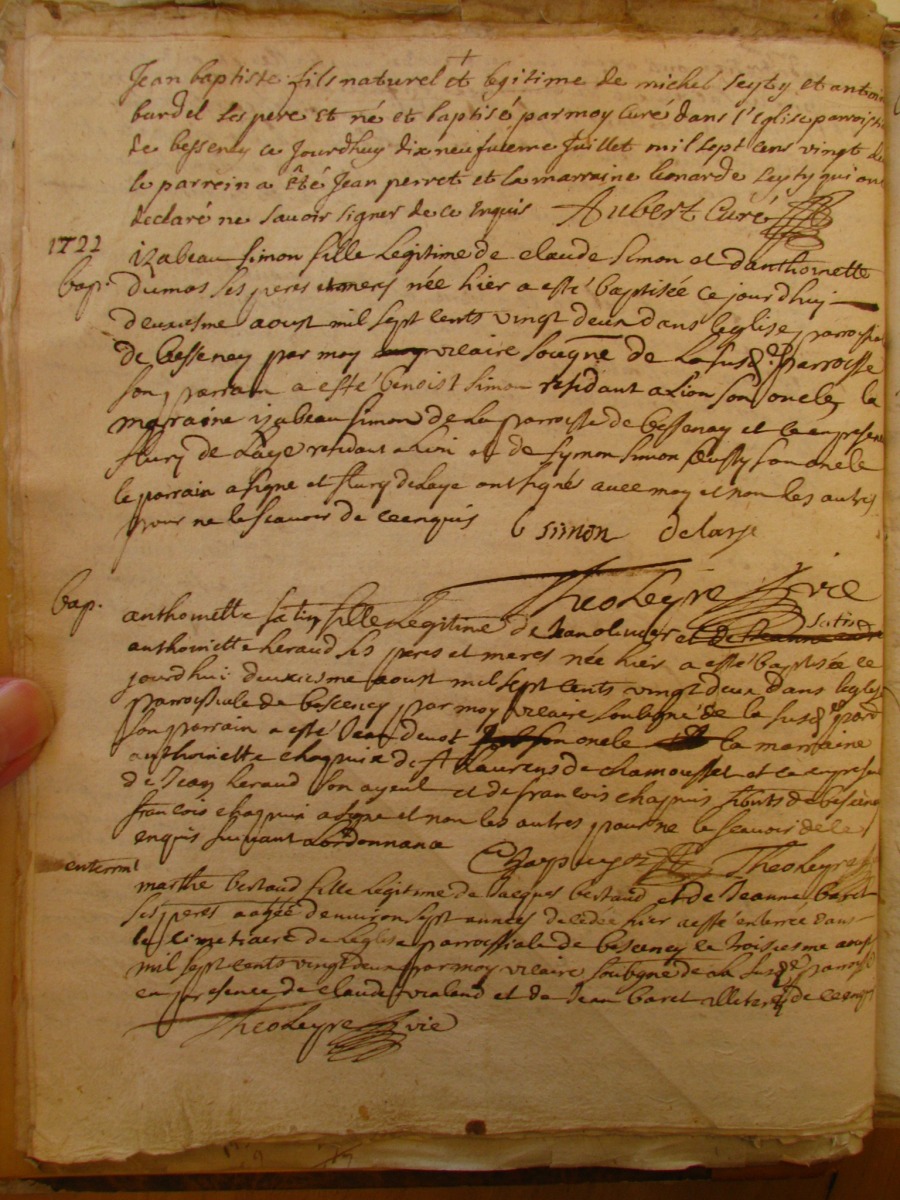 Jean baptiste fils naturel et legitime de michel seyty et antoin
burdel ses pere et né et baptisé par moy curé dans l'Eglise parroissi
de bessenay ce jourdhuy dix neufuieme Juillet mil sept cens vingt de
le parrein a êté Jean perret et la marraine leonarde seyty qui on
declaré ne savoir signer de ce enquis Aubert Curé
1722 izabeau simon fille Legitime de claude simon et danthoinette
bap. dumas ses peres et meres née hier a esté baptisée ce jourdhuj
deuxiesme aoust mil sept cents vingt deux dans leglise parrossia
de bessenay par moy vicaire soubigné de la susd.e parroisse
son parrain a esté benoist simon residant a Lion son oncle la
marraine izabeau simon de la parroisse de bessenay et en presen
flury de Laye residant a Lion et de symon simon son oncle
le parrain a signe et flury de laye ont signés avec moy et non les autres
pour ne le scavoir de ce enquis b simon delaye
Theoleyre vic
bap. anthoinette satin fille Legitime de Jean
satin
anthoinette heraud ses peres et meres née hier a esté baptisée ce
jourdhui deuxiesme aoust mil sept cents vingt deux dans legli
parrossiale de bessenay par moy vicaire soubigné de la susd.e parr
son parrain a esté Jean oncle la marraine
anthoinette chapuis de st Laurens de chamousset et en presen
de Jean heraud son ayeul et de francois chapuis de bessena
francois chapuis a signe et non les autres pour ne le scavoir de ce
enquis suivant Lordonnance Chapuys Theoleyre
enterrmt
marthe bertaud fille legitime de Jacques bertaud et de Jeanne baret
ses peres aagée denviron sept années decedée hier a esté enterrée dans
le cimetiere de leglise parrossiale de bessenay le troisiesme aoust
mil sept cents vingt deux par moy vicaire soubigné de la susd.e parroiss
en presence de claude vialand et de Jean baret illeterés de ce enqi
Theoleyre vic